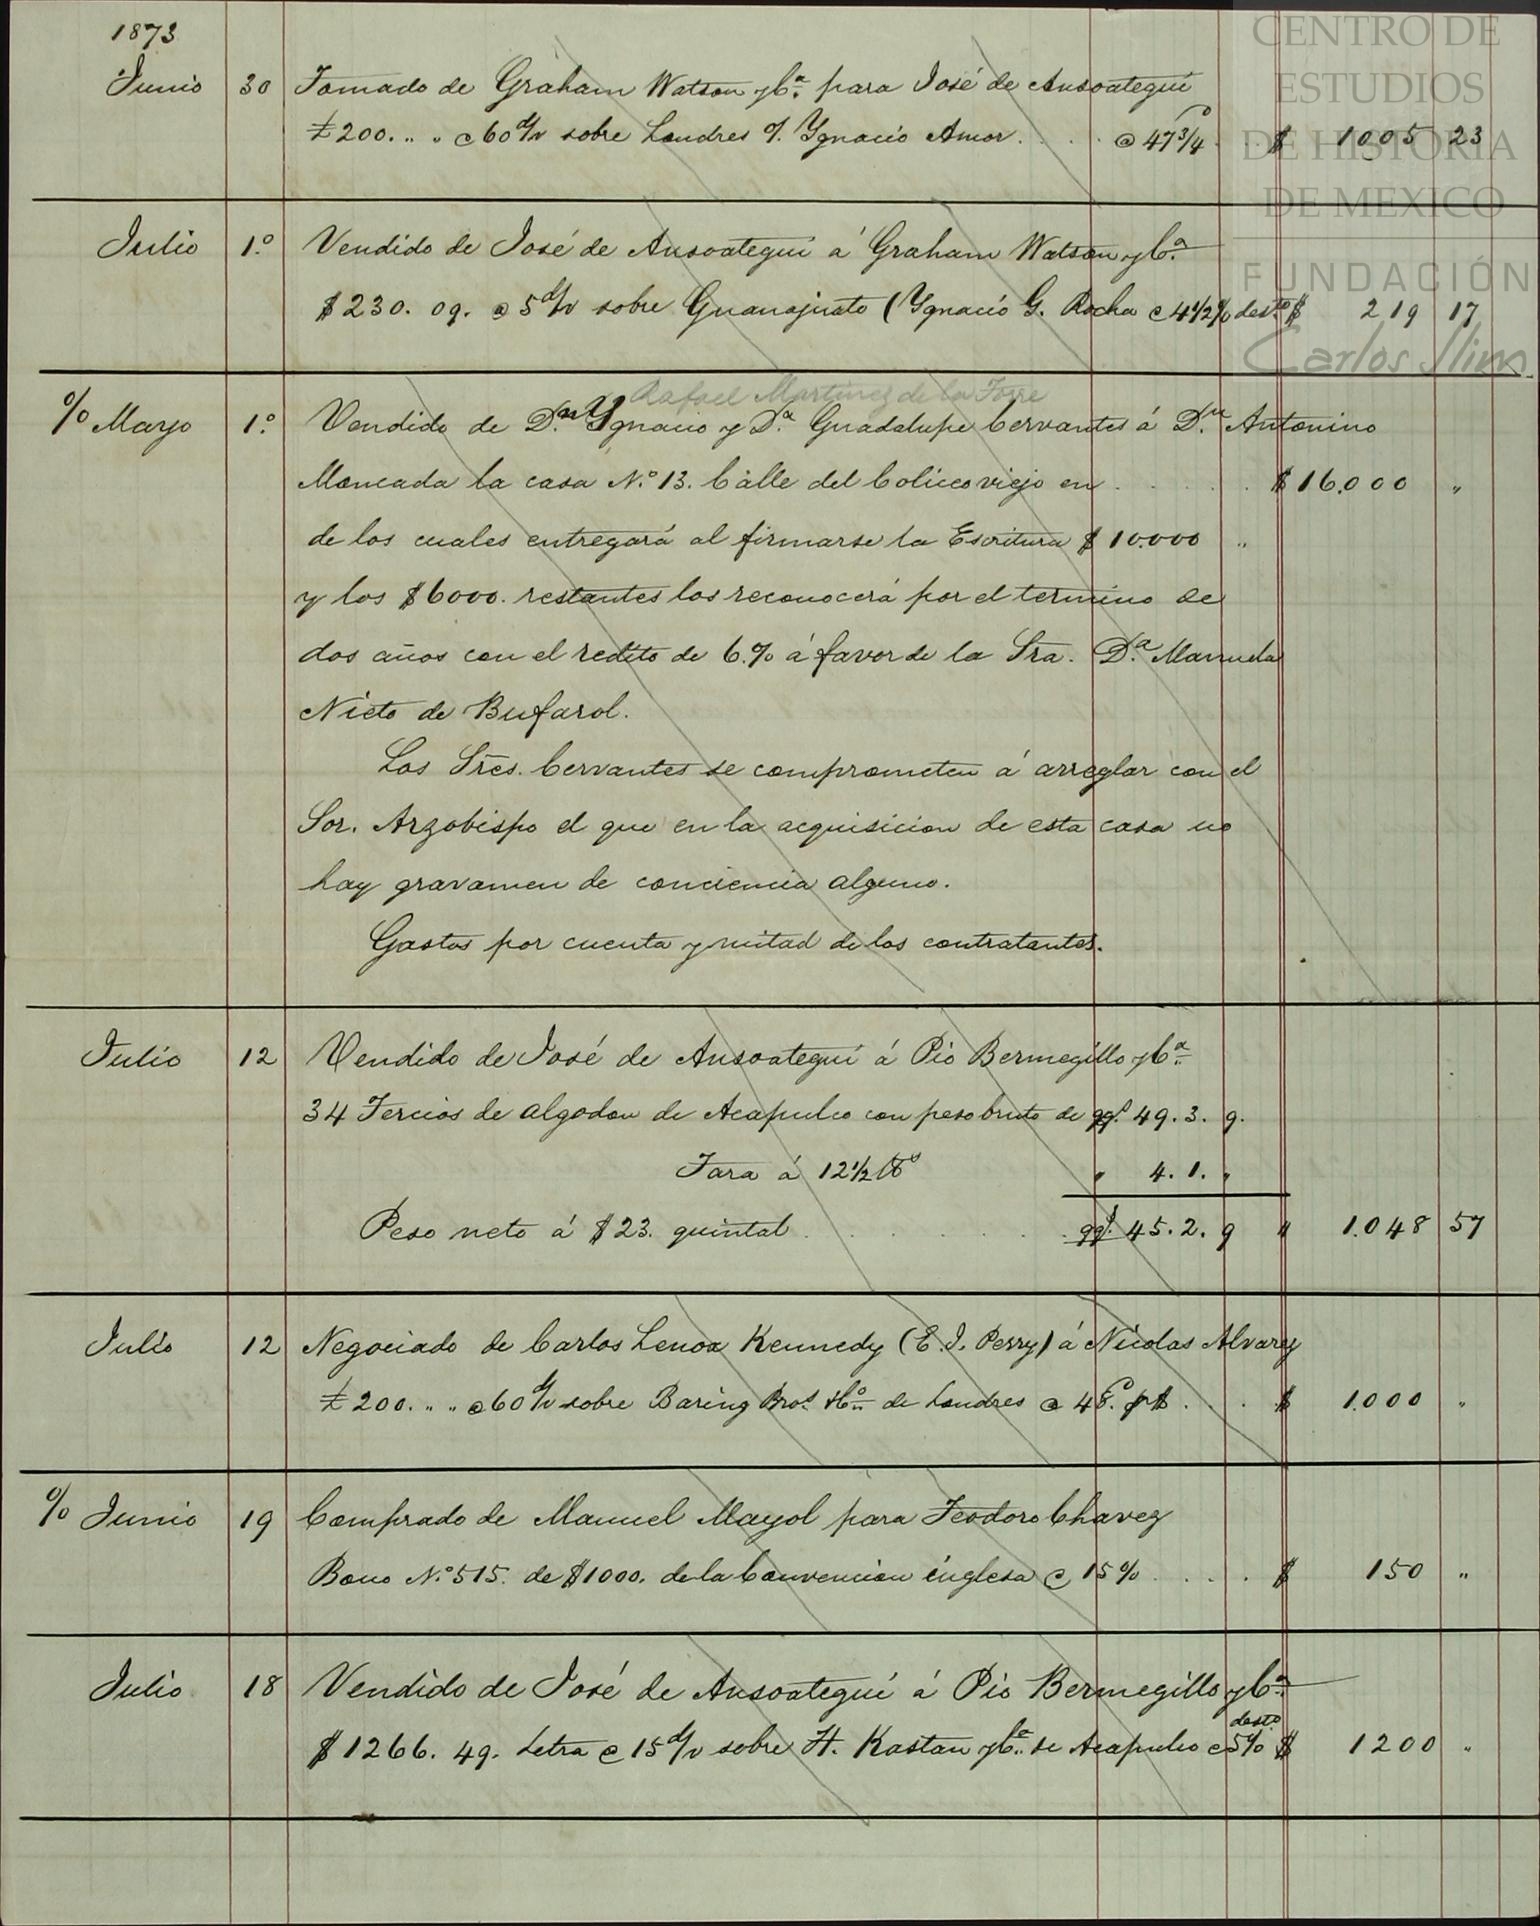 CENTRO DE
ESTUDIOS
DE HISTORIA
DE MEXICO
FUNDACIÓN
Carlos Slim
1873
Junio 30 Tomado de Graham Watson y Cª. para José de Ansoategui
£ 200. „ „ @ 60 d/v sobre Londres o/. Ygnacio Amor. . . . @ 47 3/4 . . $ 1005 23
Julio 1.º Vendido de José de Ansoategui á Graham Watson y Cª.
$ 230. 09. @ 5 d/v sobre Guanajuato (Ygnacio G. Rocha @ 4 1/2 % desto $ 219 17
Rafael Martinez de la Torre
% Mayo 1.º Vendido de Dn. Ygnacio y Dª. Guadalupe Cervantes á Dn. Antonino
Moncada la casa N.º 13. Calle del Coliceo viejo en . . . . . $ 16.000 „
de los cuales entregará al firmarse la Escritura $ 10.000 „
y los $ 6000. restantes los reconocerá por el termino de
dos años con el redito de 6. % á favor de la Sra. Dª. Manuela
Nieto de Bufarol.
Los Sres. Cervantes se comprometen á arreglar con el
Sor. Arzobispo el que en la acquisicion de esta casa no
hay gravamen de conciencia alguno.
Gastos por cuenta y mitad de los contratantes.
Julio 12 Vendido de José de Ansoategui á Pio Bermegillo y Cª.
34 Tercios de algodon de Acapulco con peso bruto de qqs. 49. 3. 9.
Tara á 12 1/2 ℔s „ 4. 1. „
Peso neto á $ 23. quintal . . . . . . qqs. 45. 2. 9 „ 1.048 57
Julio 12 Negociado de Carlos Lenox Kennedy (E. J. Perry) á Nicolas Alvarez
£ 200. „ „ @ 60 d/v sobre Baring Bros. & Cº. de Londres @ 48. p $ . . . $ 1.000 „
% Junio 19 Comprado de Manuel Mayol para Teodoro Chavez
Bono N.º 515. de $ 1000. de la Convencion inglesa @ 15 % . . . . $ 150 „
Julio 18 Vendido de José de Ansoategui á Pio Bermegillo y Cª.
$ 1266. 49. Letra @ 15 d/v sobre H. Kastan y Cª. de Acapulco @ 5 % desto $ 1200 „